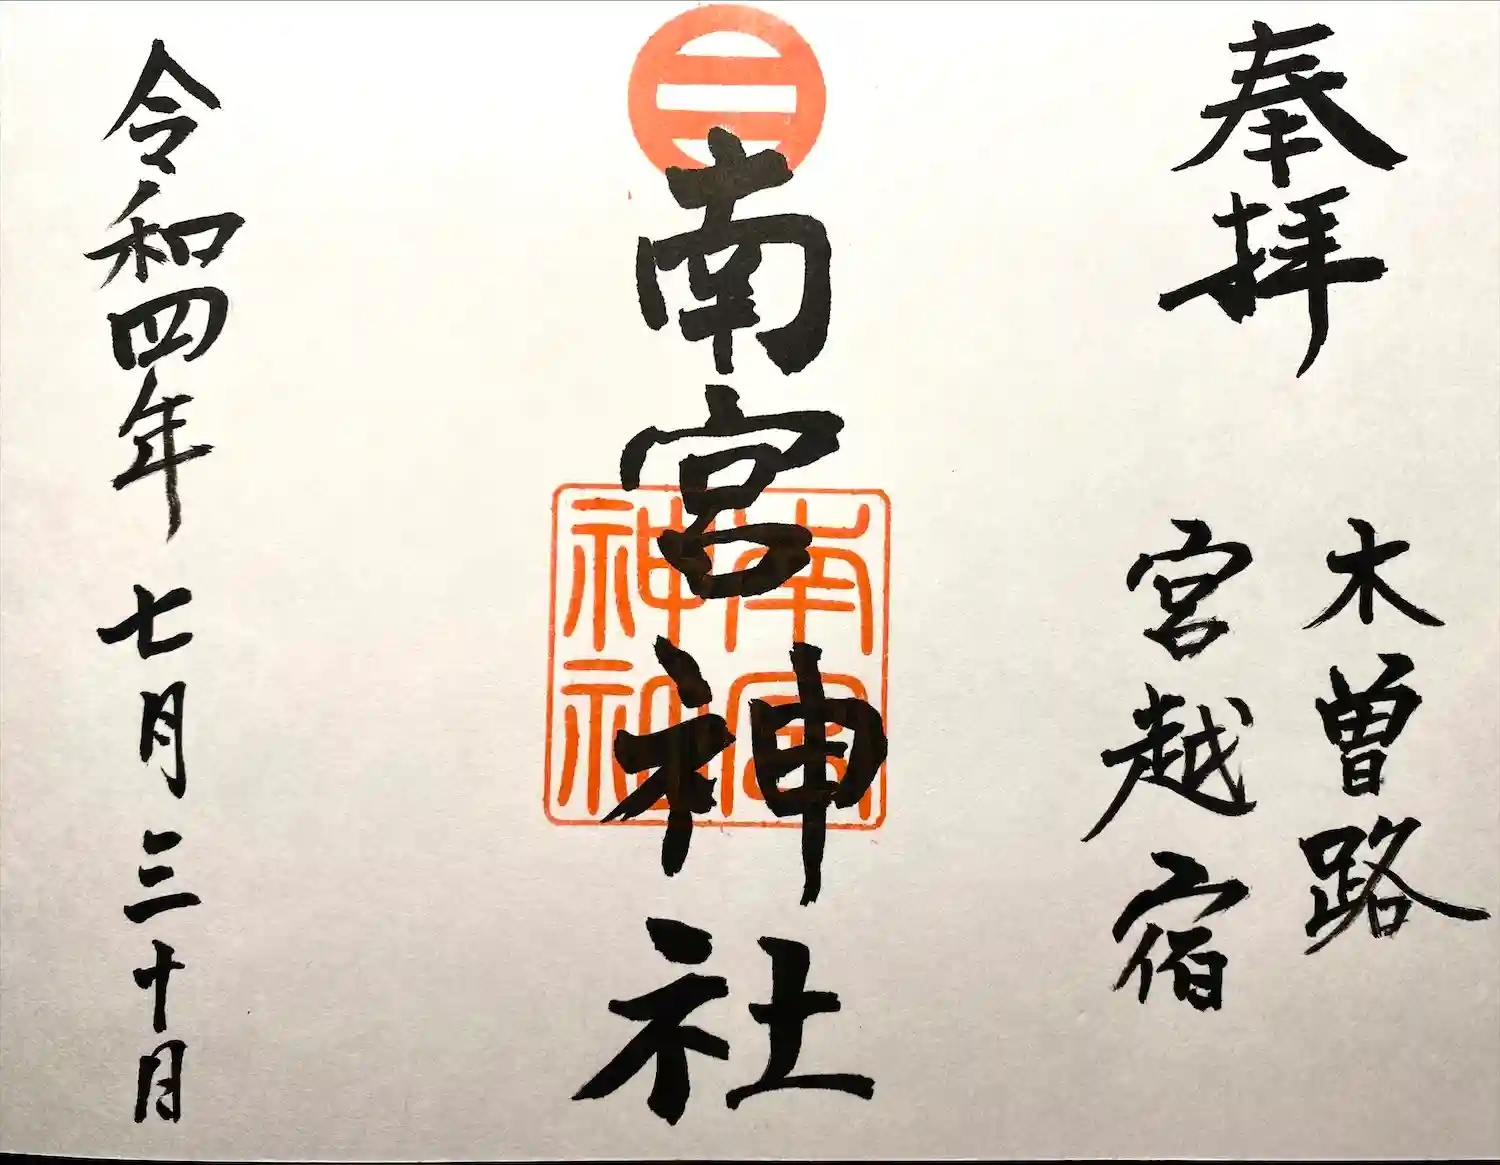 奉拝
木曽路
宮越宿
南宮神社
南宮
神社
令和四年七月三十日